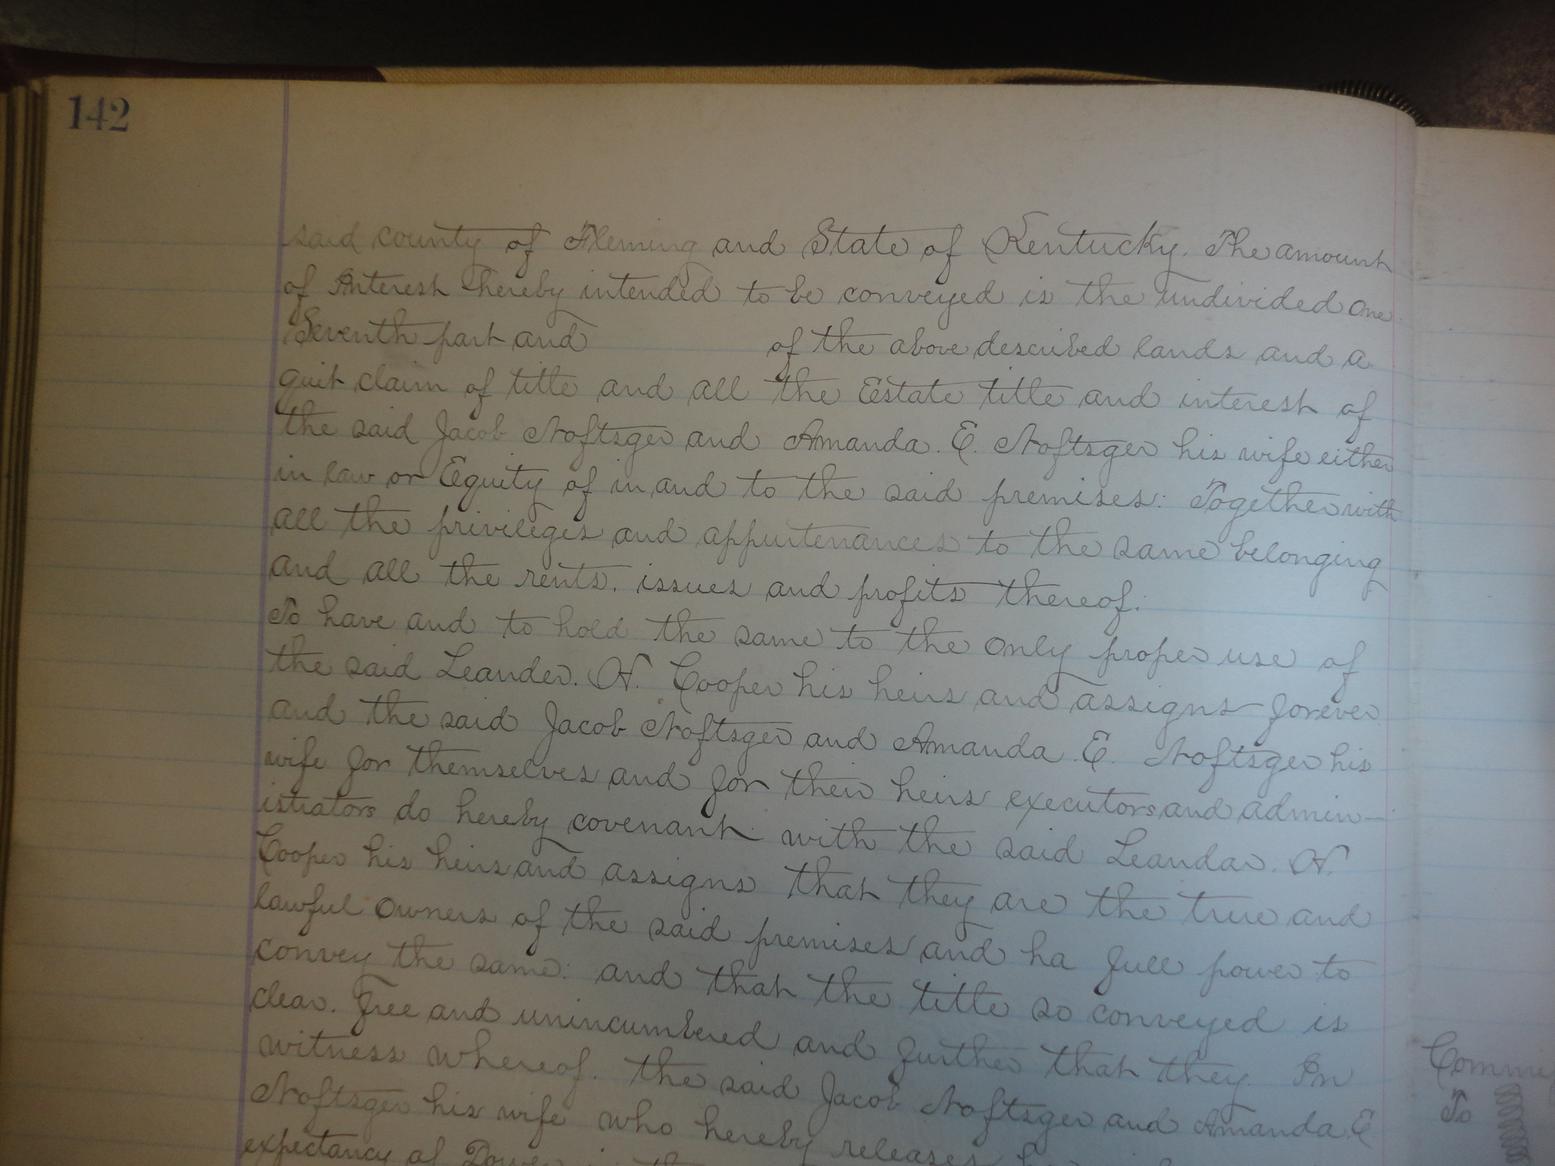 142
said county of Fleming and State of Kentucky. The amount
of Interest hereby intended to be conveyed is the undivided one
Seventh part and of the above described lands and a
quit claim of title and all the Estate title and interest of
the said Jacob Noftsger and Amanda. E. Noftsger his wife either
in law or Equity of in and to the said premises: Together with
all the privileges and appurtenances to the same belonging
and all the rents. issues and profits thereof.
To have and to hold the same to the only proper use of
the said Leander. N. Cooper his heirs and assigns forever
and the said Jacob Noftsger and Amanda. E. Noftsger his
wife for themselves and for their heirs executors and admin-
istrators do hereby covenant with the said Leander. N.
Cooper his heirs and assigns that they are the true and
lawful owners of the said premises and ha full power to
convey the same: and that the title so conveyed is
clear. Free and unincumbered and further that they. In
witness whereof. the said Jacob Noftsger and Amanda. E
Noftsger his wife who hereby releases
expectancy of Dower in the
To